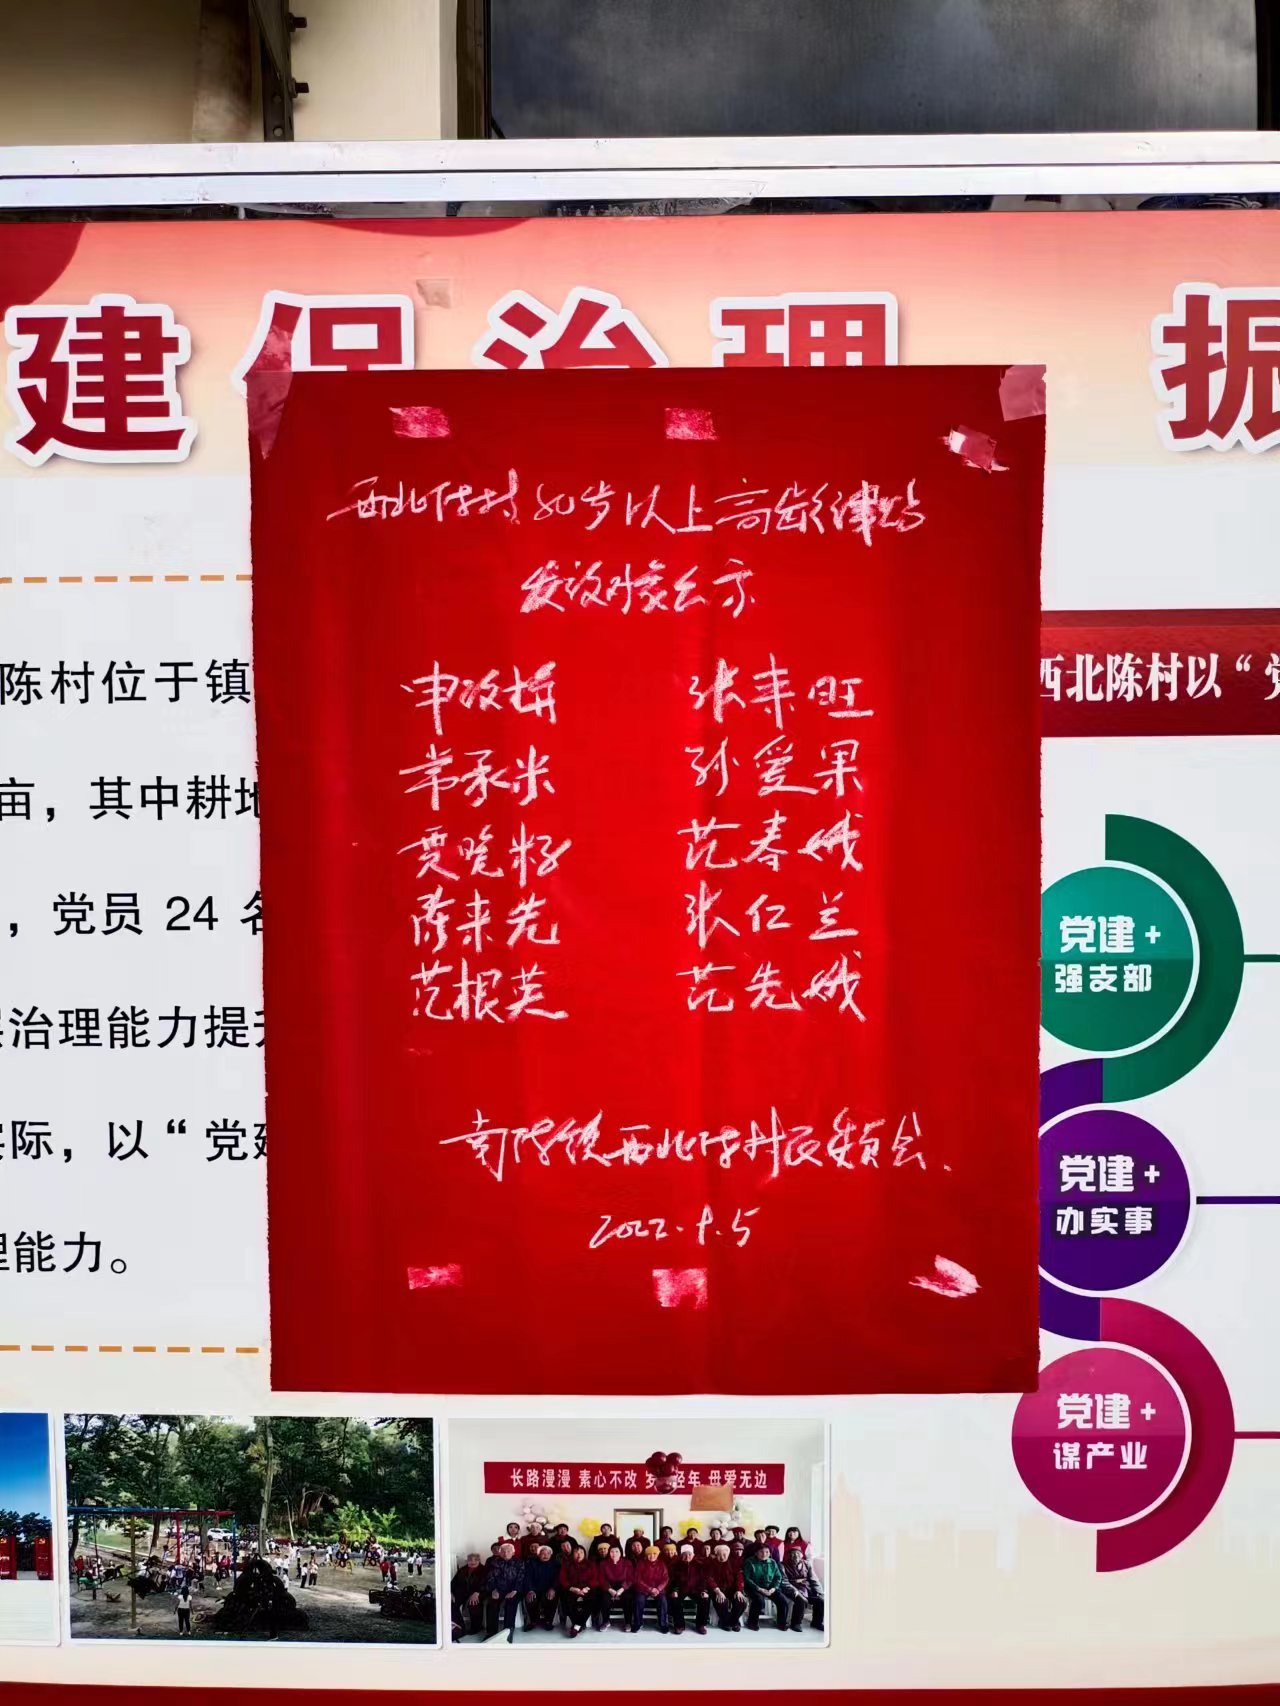 建保治理 振
西北陈村80岁以上高龄津贴
发放对象公示
申改拼 张来旺
常承米 孙爱果
贾晚籽 范春娥
陈来先 张仁兰
范根英 范先娥
南陈镇西北陈村民委员会
2022.9.5
陈村位于镇
亩，其中耕地
，党员 24 名
治理能力提升
际，以“党建
理能力。
西北陈村以“党
党建+
强支部
党建+
办实事
党建+
谋产业
长路漫漫 素心不改 轻年 母爱无边